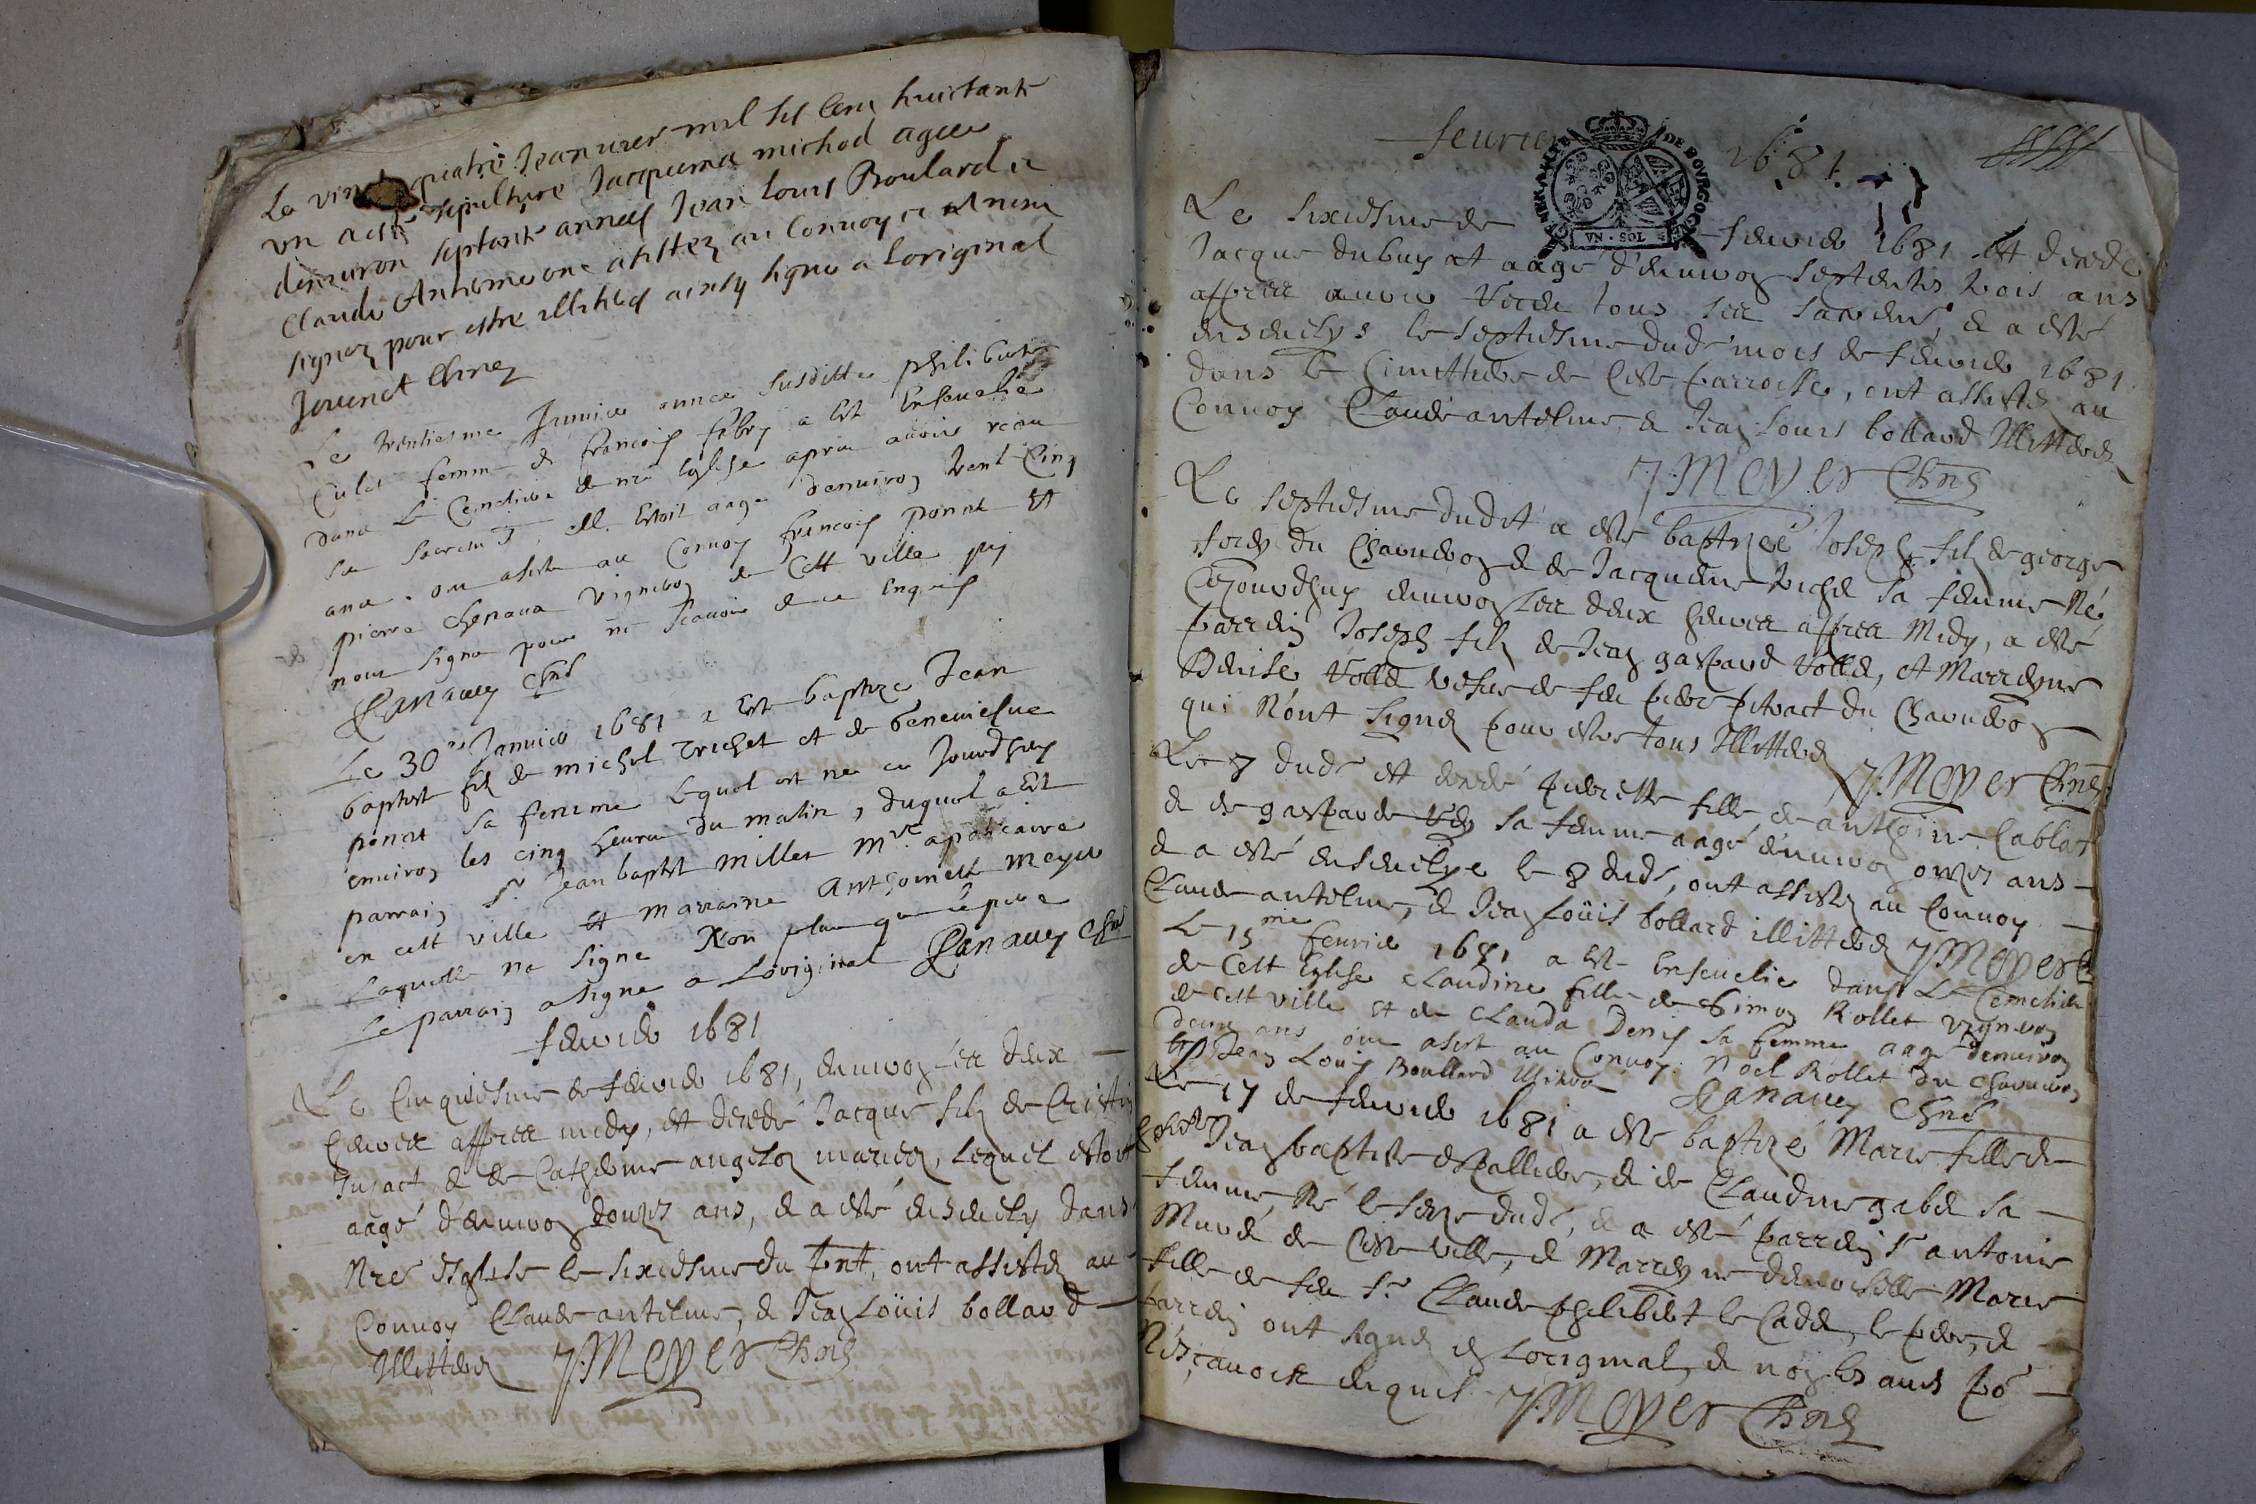 Le vingt quatre Jeanvier mil six cent huictante
un acté sepulture Jacquema michod agee
denviron septante annees Jean Louis Boulard et
Claude Anthieme ont assistez au Convoy et n'ont
signez pour estre illittes ainsy signe a Loriginal
Jouenet Chne
Le trentiesme Janvier annee susditte philiberte
Culet femme de francois fabry a Est Ensevelie
dans Le Cemetiere de nre Eglise apres avoir receu
ses sacremts, elle Estoit aage denviron trent Cinq
ans. ont assiste au Convoy francois ponnet Et
pierre Chenava Vigneron de Cett ville qui
nont signe pour ne scavoir de ce Enquis
Panavey Chne
Le 30e Janvier 1681 a Este baptize Jean
baptist fils de michel Trichet et de benevielue
ponat sa femme Lequel est ne ce Jourdhuy
environ les cinq heures du matin, duquel a Est
parrain Sr Jean baptist millet Mre apoticaire
en cett ville Et marraine Anthoinette Meyer
Laquelle na signe Non plus que le pere
Le parrain a signe a Loriginal Panavey Chne
fevrier 1681
Le Cinquiesme de fevrier 1681, environ les deux
heures appres midy, est decede Jacque fils de Cristin
Jujact, et de Catherine angelon mariez, Lequel estoit
aagé d'environ douzes ans, et a esté ensevely dans
Nre Esglise le sixiesme du pnt, ont assistez au
Convoy Claude antelme, et Jean Loüis bollard
Illitterez J. Meyer Chne
fevrier 1681
GENERALITE DE BOURGOGNE
UN · SOL
Le sixiesme de fevrier 1681 est decede
Jacque dubuy at aagé d'environ septentes trois ans
appres avoir receu tous ses sacremts, et a este
ensevelys le septiesme dude mois de fevrier 1681
dans le Cimetthiere de Ceste parroisse, ont assistez au
Convoy Claude antelme, et Jean Louis bollard Illitterez
J. Meyer Chne
Le septiesme dudit a este baptizeé Joseph fils de george
du Chaveron et de Jacqueme triche sa femme Né
Cejourdhuy environ les deux heures appres Midy, a esté
parrein Joseph fils de Jean gaspard Volle, et Marreyne
Denise Volle vefve de feu piere pitract du Chaveron
qui N'ont signez pour estre tous Illitterez J. Meyer Chne
Le 7 dude est decedé pierrette fille de anthoine Cablat
et de gasparde sa femme aagé d'environ onzes ans
et a esté ensevelye le 8 dude, ont assistez au Convoy
Claude antelme, et Jean Loüis bollard illitterez J. Meyer C
Le 15me fevrier 1681 a Est Ensevelie dans Le Cemetiere
de Cett Eglise Claudine fille de Simon Rollet vigneron
de Cett ville Et de Clauda Denis sa femme aage denviron
deux ans ont asist au Convoy Noel Rollet du Chaveron
Et Jean Louis Boullard Illitere Panavey Chne
Le 17 de fevrier 1681 a este baptizé Marie fille de
Jean baptiste espallier, et de Claudine gabet sa
femme, Né le seize dude, et a esté parrein Sr antoine
Muret de Ceste ville, et Marreyne demoiselle Marie
fille de feu Sr Claude philibert le Cadet, le pere, et
parrein ont signez en Loriginal, et non les aus po
N'esçavoir enquis J. Meyer Chne